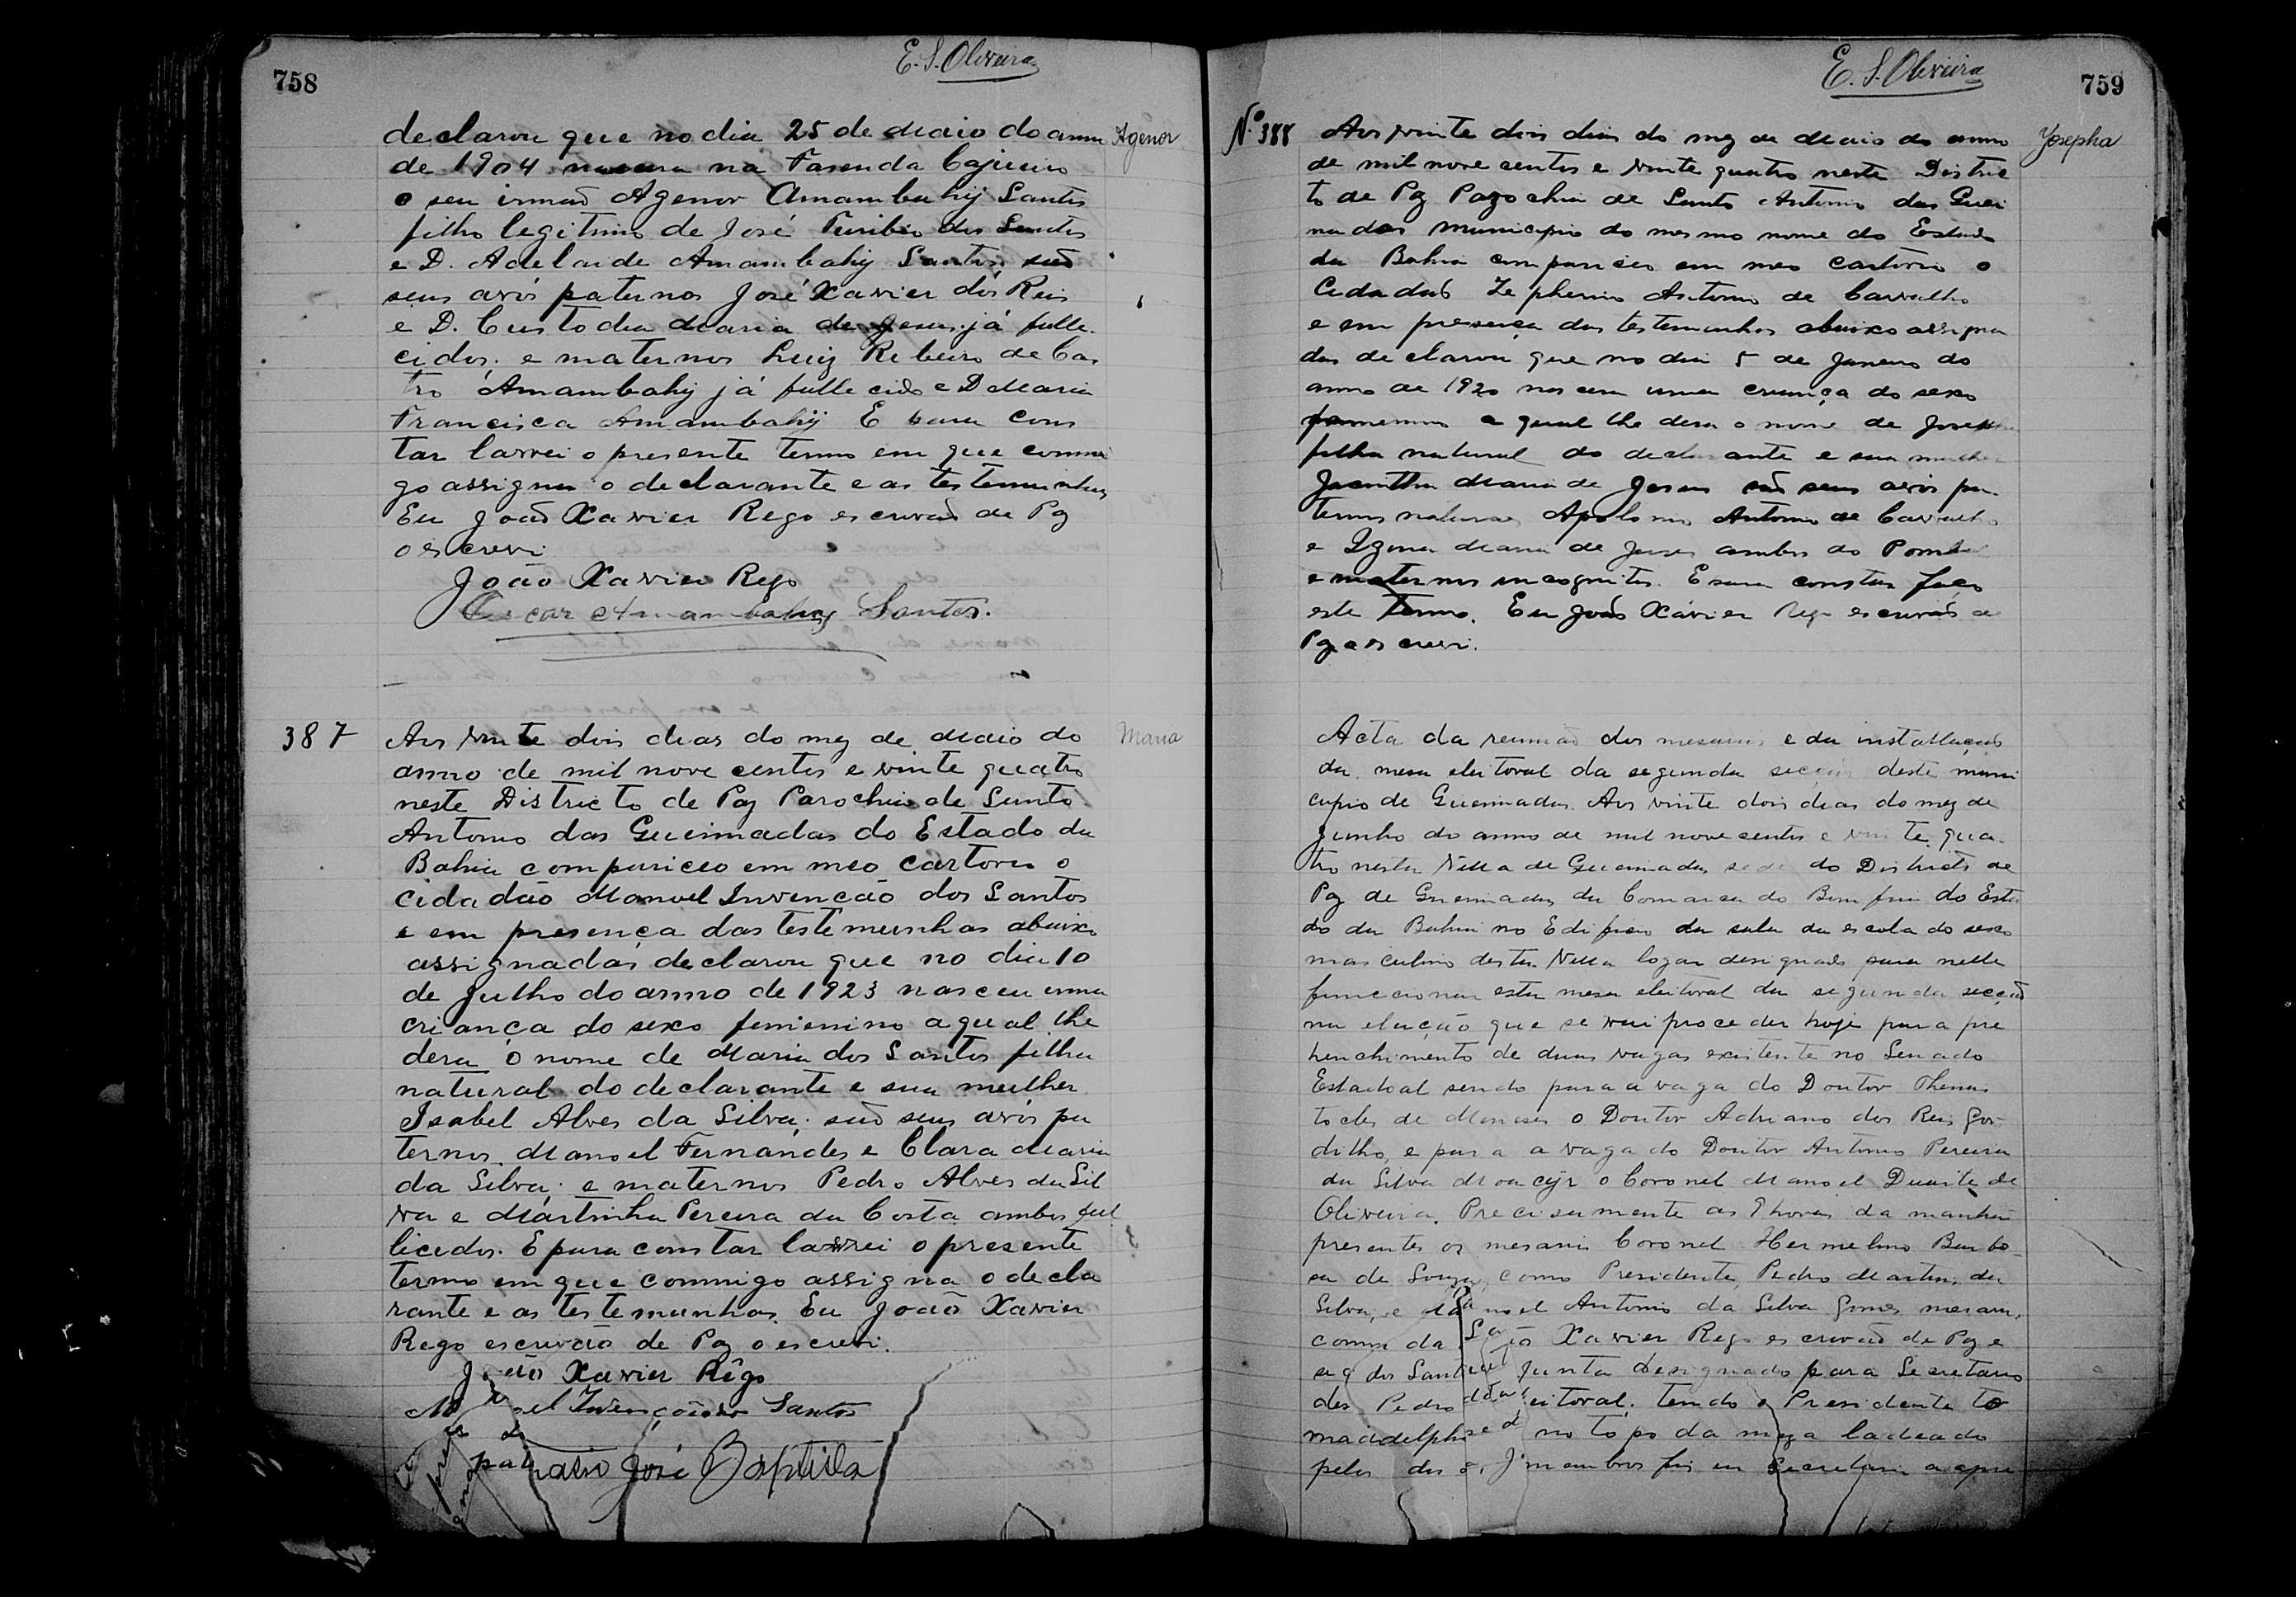 758
E. S. Oliveira
declarou que no dia 25 de Maio do anno
Agenor
de 1904 nascera na Fasenda Cajueiro
o seu irmaõ Agenor Amambahy Santos
filho legitimo de José Turibio dos Santos
e D. Adelaide Amambahy Santos, saõ
seus avós paternos José Xavier dos Reis
e D. Custodia Maria de Jesus já falle-
cidos; e maternos Luiz Ribeiro de Cas
tro Amambahy já fallecido e D Maria
Francisca Amambahy E para cons
tar lavrei o presente termo em que commi
go assigna o declarante e as testemunhas
Eu Joaõ Xavier Rego escrivaõ de Paz
o escrevi
João Xavier Rego
Oscar Amambahy Santos.
387
Aos vinte dois dias do mez de Maio do
Maria
anno de mil nove centos e vinte quatro
neste Districto de Paz Parochia de Santo
Antonio das Queimadas do Estado da
Bahia compariceo em meo cartorio o
cidadão Manoel Invenção dos Santos
e em presença das testemunhas abaixo
assignadas declarou que no dia 10
de Julho do anno de 1923 nasceu uma
criança do sexo feminino a qual lhe
dera o nome de Maria dos Santos filha
natural do declarante e sua mulher
Isabel Alves da Silva; saõ seus avós pa
ternos Manoel Fernandes e Clara Maria
da Silva; e maternos Pedro Alves da Sil
va e Martinha Pereira da Costa ambos fal
licidos. E para constar lavrei o presente
termo em que commigo assigna o decla
rante e as testemunhas. Eu Joaõ Xavier
Rego escrivão de Paz o escrevi.
João Xavier Rêgo
Invenção dos Santos
José Baptista
E. S. Oliveira
759
Nº 388
Aos vinte dois dias do mez de Maio do anno
Josepha
de mil nove centos e vinte quatro neste Distric
to de Paz Parochia de Santo Antonio das Quei
madas municipio do mesmo nome do Estado
da Bahia compariceo em meo cartorio o
Cidadaõ Zepherino Antonio de Carvalho
e em presença das testemunhas abaixo assigna
das declarou que no dia 5 de Janeiro do
anno de 1920 nasceu uma criança do sexo
femenino a qual lhe dera o nome de Josepha
filha natural do declarante e sua mulher
Jacintha Maria de Jesus saõ seus avós pa-
ternos naturaes Apolonio Antonio de Carvalho
e Izma Maria de Jesus ambos do Pombal
e maternos incognitos. E para constar faço
este termo. Eu Joaõ Xavier Rego escrivaõ de
Paz o escrevi.
Acta da reuniaõ dos mesarios e da installaçaõ
da mesa eleitoral da segunda secçaõ deste muni
cipio de Queimadas. Aos vinte dois dias do mez de
Junho do anno de mil nove centos e vinte qua-
tro nesta Villa de Queimadas sede do Districto de
Paz de Queimadas da Comarca do Bomfim do Esta
do da Bahia no Edificio da sala da escola do sexo
masculino desta Villa logar designado para nelle
funccionar esta mesa eleitoral da segunda secçaõ
na eleição que se vai proceder hoje para pre
henchimento de duas vagas existente no Senado
Estadoal sendo para a vaga do Doutor Themis
tocles de Menezes o Doutor Adriano dos Reis Gor-
dilho, e para a vaga do Doutor Antonio Pereira
da Silva Moacyr o Coronel Manoel Duarte de
Oliveira. Precisamente as 9 horas da manhã
presentes os mesarios Coronel Hermelino Barbo-
sa de Souza, como Presidente, Pedro Martins da
Silva, e Manoel Antonio da Silva Gomes, mesarios,
Xavier Rego escrivaõ de Paz e
Junta designado para Secretario
eitoral; tendo o Presidente to
no topo da meza ladeado
pelos membros fis eu Secretario a apre